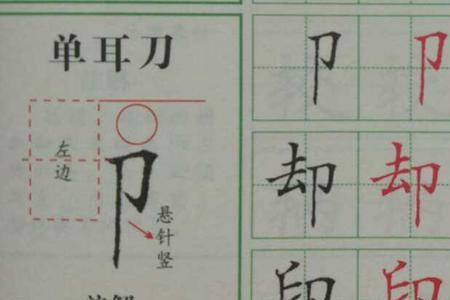 单耳刀
左边
卩
悬针竖
卩 卩
却 却
印 印